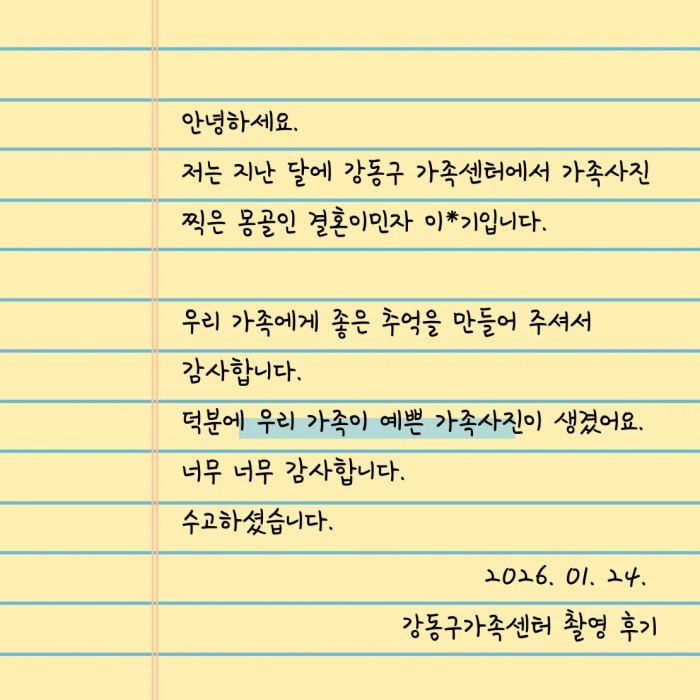 안녕하세요.
저는 지난 달에 강동구 가족센터에서 가족사진
찍은 몽골인 결혼이민자 이*기입니다.
우리 가족에게 좋은 추억을 만들어 주셔서
감사합니다.
덕분에 우리 가족이 예쁜 가족사진이 생겼어요.
너무 너무 감사합니다.
수고하셨습니다.
2026. 01. 24.
강동구가족센터 촬영 후기